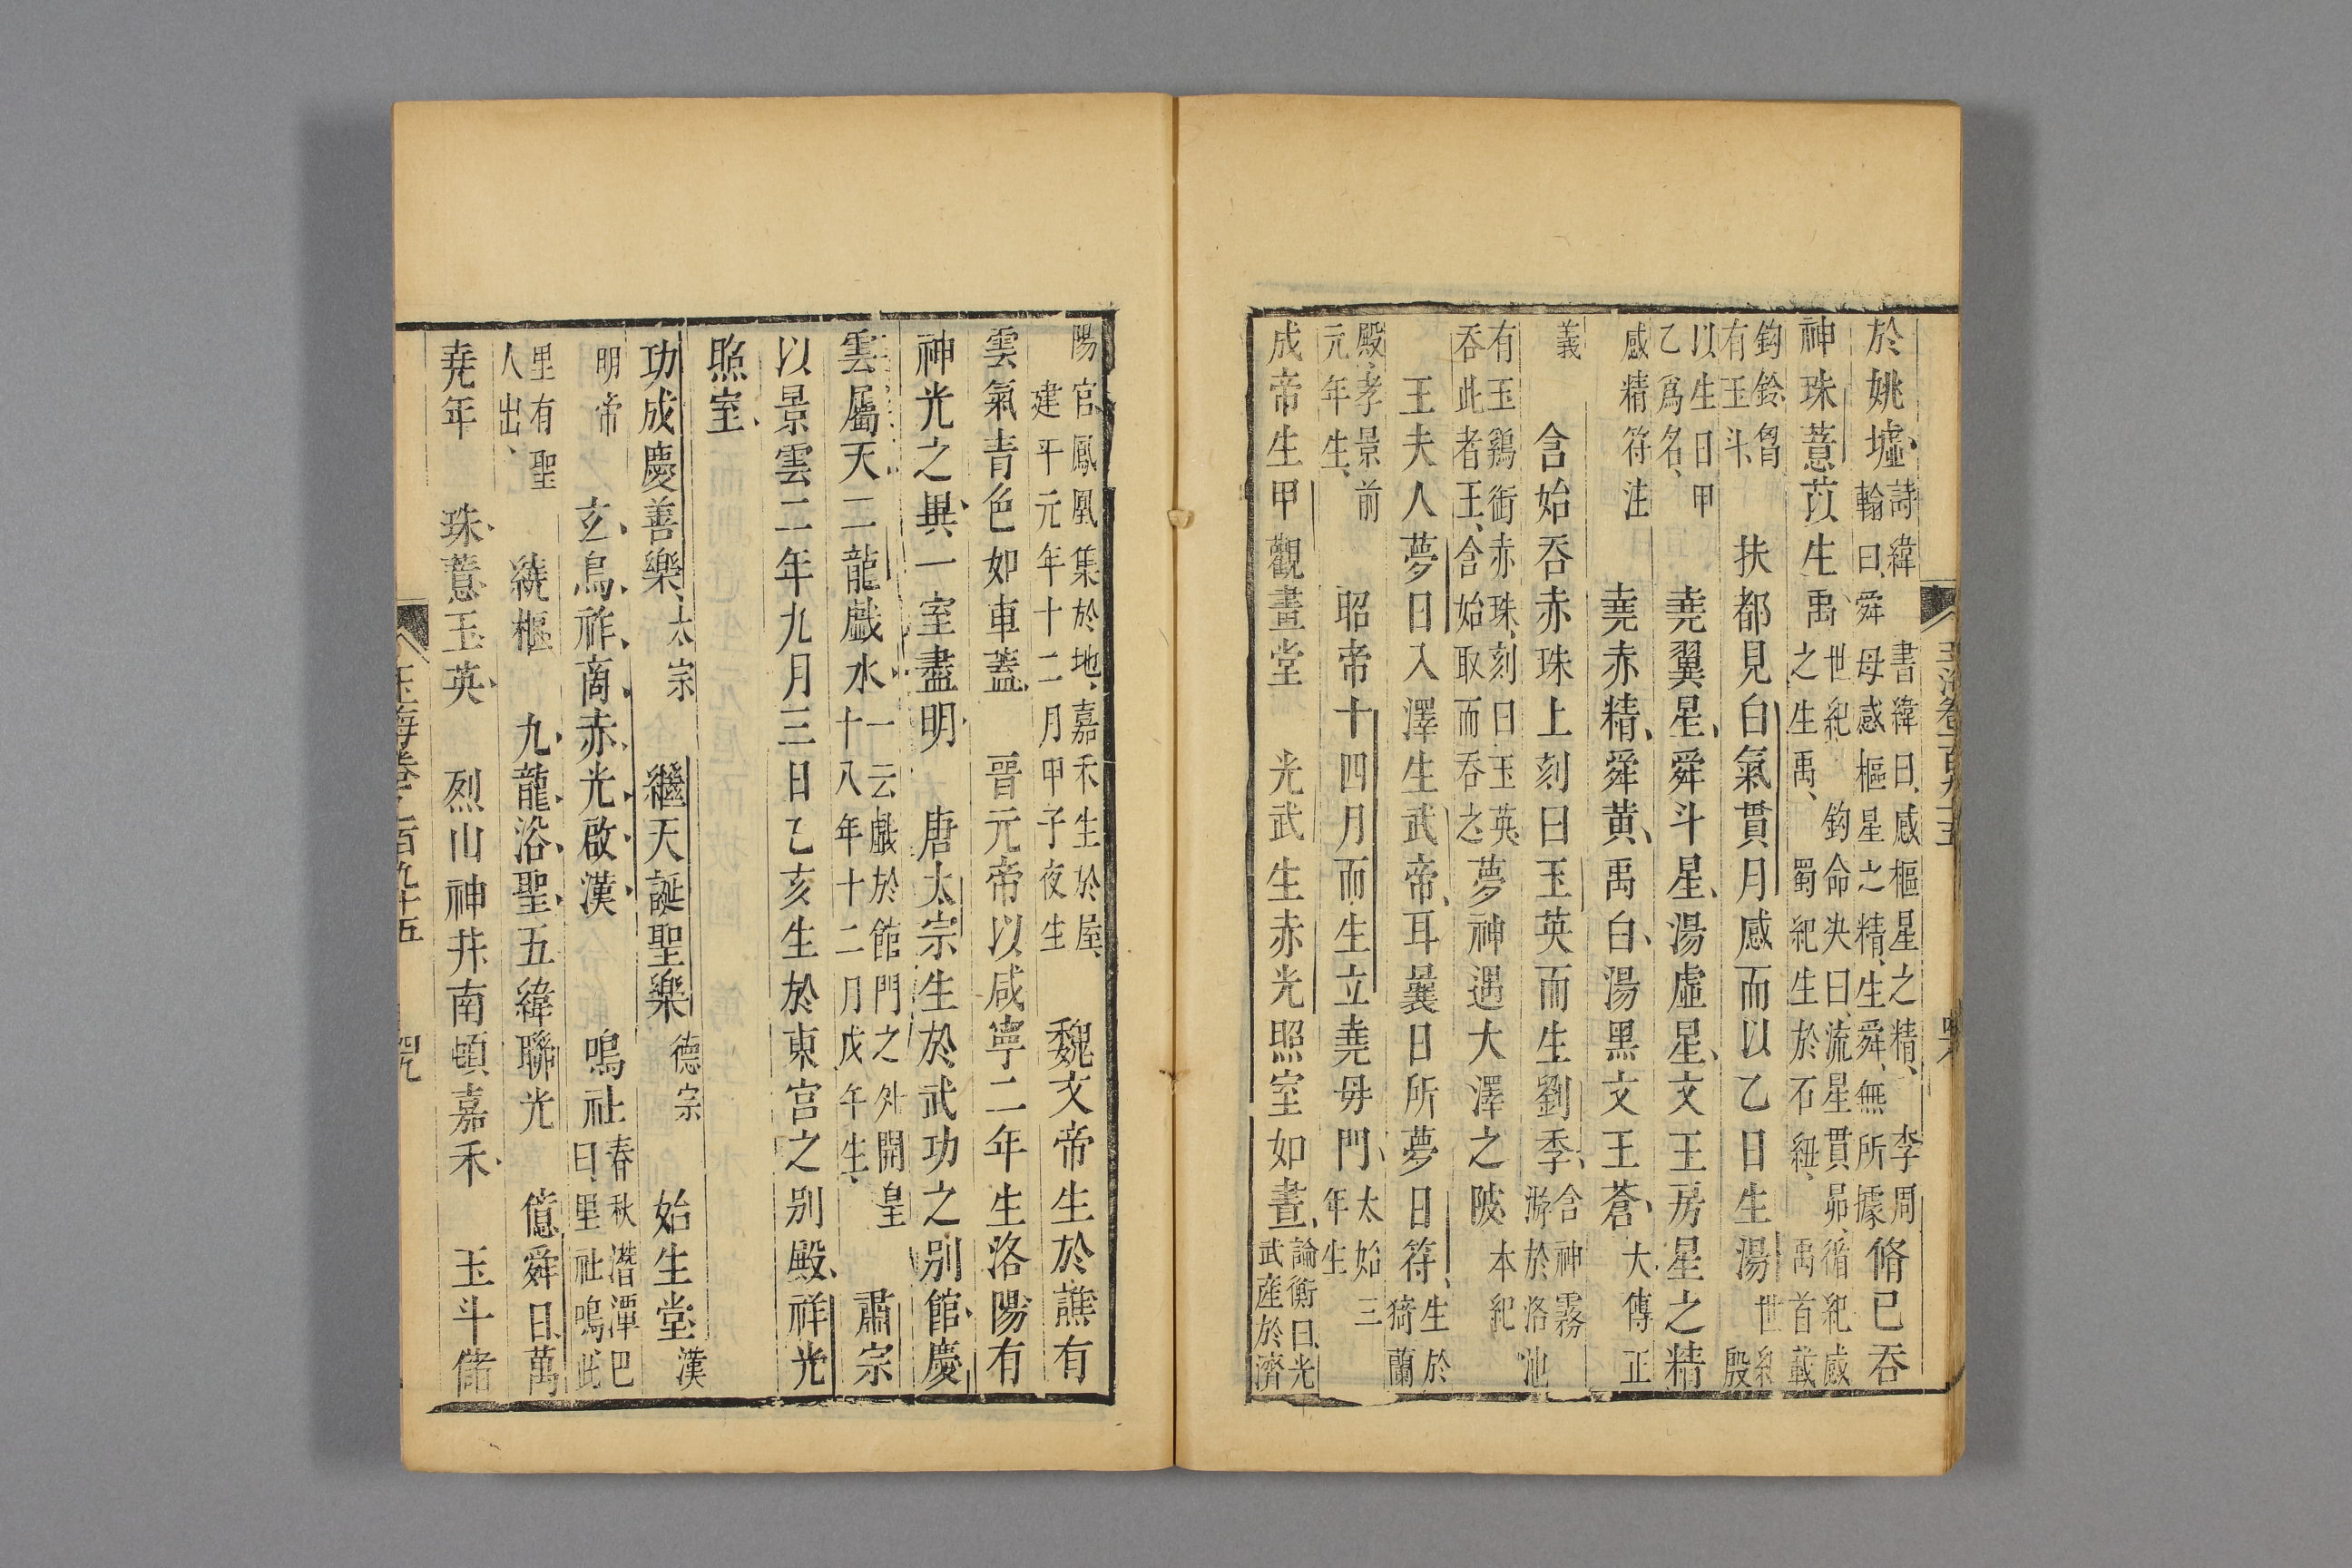 於姚墟詩緯書緯曰感樞星之精李周翰曰舜母感樞星之精生舜無所據脩已吞
神珠薏苡生禹世紀鈞命決曰流星貫昴循紀感之生禹蜀紀生於石紐禹首戴
鈞鈐胷有玉斗扶都見白氣貫月感而以乙日生湯世紀殷
以生日甲乙爲名堯翼星舜斗星湯虛星文王房星之精
感精符注堯赤精舜黄禹白湯黑文王蒼大傳正
義含始吞赤珠上刻曰玉英而生劉季含神霧游於洛池
有玉鷄銜赤珠刻曰玉英吞此者王含始取而吞之夢神遇大澤之陂本紀
王夫人夢日入澤生武帝耳曩日所夢日符生於猗蘭
殿孝景前元年生昭帝十四月而生立堯母門太始三年生
成帝生甲觀畫堂光武生赤光照室如晝論衡曰光武産於濟
玉海卷一百九十五
陽官鳳凰集於地嘉禾生於屋建平元年十二月甲子夜生魏文帝生於譙有
雲氣青色如車蓋晉元帝以咸寧二年生洛陽有
神光之異一室盡明唐太宗生於武功之别館慶
雲屬天二龍戲水一云戲於館門之外開皇十八年十二月戊午生肅宗
以景雲二年九月三日乙亥生於東宫之别殿祥光
照室
功成慶善樂太宗繼天誕聖樂德宗始生堂漢
明帝玄鳥祚商赤光啟漢鳴社春秋潛潭巴曰里社鳴此
里有聖人出繞樞九龍浴聖五緯聯光億舜日萬
堯年珠薏玉英烈山神井南頓嘉禾玉斗儲
玉海卷之一百九十五